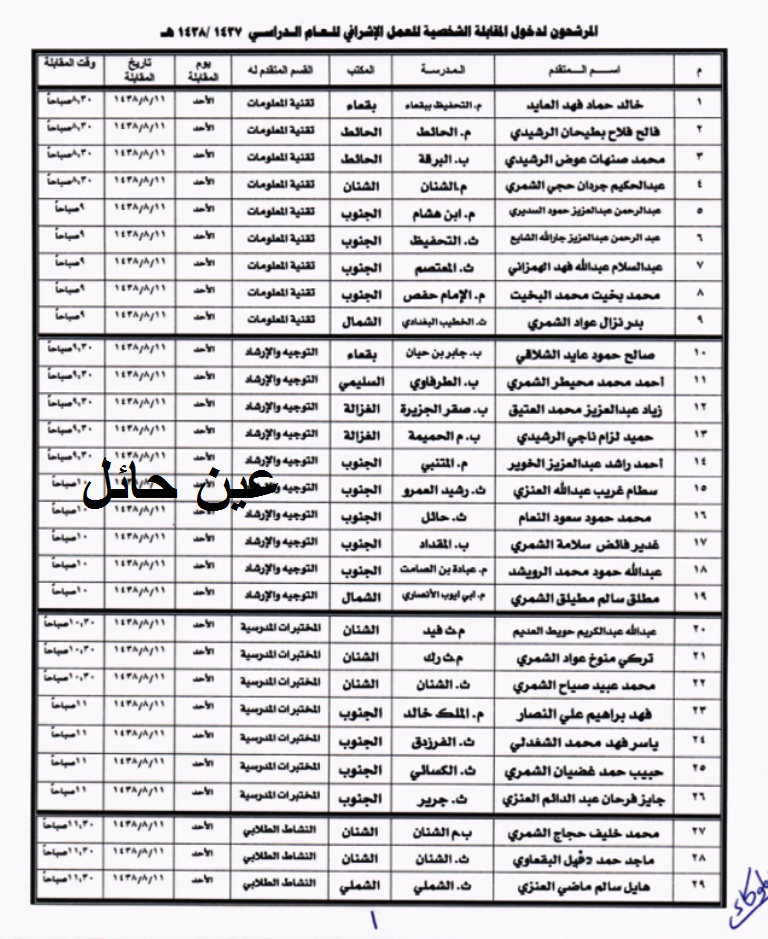 المرشحون لدخول المقابلة الشخصية للعمل الإشرافي للعام الدراسي ١٤٣٧ /١٤٣٨ هـ
م اسم المتقدم المدرسة المكتب القسم المتقدم له يوم المقابلة تاريخ المقابلة وقت المقابلة
١ خالد حماد فهد العايد م. التحفيظ ببقعاء بقعاء تقنية المعلومات الأحد ١٤٣٨/٨/١١ ٨،٣٠صباحاً
٢ فالح فلاح بطيحان الرشيدي م. الحائط الحائط تقنية المعلومات الأحد ١٤٣٨/٨/١١ ٨،٣٠صباحاً
٣ محمد صنهات عوض الرشيدي ب. البرقة الحائط تقنية المعلومات الأحد ١٤٣٨/٨/١١ ٨،٣٠صباحاً
٤ عبدالحكيم جردان حجي الشمري م.الشنان الشنان تقنية المعلومات الأحد ١٤٣٨/٨/١١ ٨،٣٠صباحاً
٥ عبدالرحمن عبدالعزيز حمود السديري م. ابن هشام الجنوب تقنية المعلومات الأحد ١٤٣٨/٨/١١ ٩صباحاً
٦ عبد الرحمن عبدالعزيز جارالله الشايع ث. التحفيظ الجنوب تقنية المعلومات الأحد ١٤٣٨/٨/١١ ٩صباحاً
٧ عبدالسلام عبدالله فهد الهمزاني ث. المعتصم الجنوب تقنية المعلومات الأحد ١٤٣٨/٨/١١ ٩صباحاً
٨ محمد بخيت محمد البخيت م. الإمام حفص الجنوب تقنية المعلومات الأحد ١٤٣٨/٨/١١ ٩صباحاً
٩ بدر نزال عواد الشمري ث. الخطيب البغدادي الشمال تقنية المعلومات الأحد ١٤٣٨/٨/١١ ٩صباحاً
١٠ صالح حمود عايد الشلاقي ب. جابر بن حيان بقعاء التوجيه والإرشاد الأحد ١٤٣٨/٨/١١ ٩،٣٠صباحاً
١١ أحمد محمد محيطر الشمري ب. الطرفاوي السليمي التوجيه والإرشاد الأحد ١٤٣٨/٨/١١ ٩،٣٠صباحاً
١٢ زياد عبدالعزيز محمد العتيق ب. صقر الجزيرة الغزالة التوجيه والإرشاد الأحد ١٤٣٨/٨/١١ ٩،٣٠صباحاً
١٣ حميد لزام ناجي الرشيدي ب. م الحميمة الغزالة التوجيه والإرشاد الأحد ١٤٣٨/٨/١١ ٩،٣٠صباحاً
١٤ أحمد راشد عبدالعزيز الخوير م. المتنبي الجنوب التوجيه والإرشاد الأحد ١٤٣٨/٨/١١ ٩،٣٠صباحاً
عين حائل
١٥ سطام غريب عبدالله العنزي ث. رشيد العمرو الجنوب التوجيه والإرشاد الأحد ١٤٣٨/٨/١١ ١٠صباحاً
١٦ محمد حمود سعود النعام ث. حائل الجنوب التوجيه والإرشاد الأحد ١٤٣٨/٨/١١ ١٠صباحاً
١٧ غدير فائض سلامة الشمري ب. المقداد الجنوب التوجيه والإرشاد الأحد ١٤٣٨/٨/١١ ١٠صباحاً
١٨ عبدالله حمود محمد الرويشد م. عبادة بن الصامت الجنوب التوجيه والإرشاد الأحد ١٤٣٨/٨/١١ ١٠صباحاً
١٩ مطلق سالم مطيلق الشمري م. ابي ايوب الأنصاري الشمال التوجيه والإرشاد الأحد ١٤٣٨/٨/١١ ١٠صباحاً
٢٠ عبدالله عبدالكريم حويط العديم م.ث فيد الشنان المختبرات المدرسية الأحد ١٤٣٨/٨/١١ ١٠،٣٠صباحاً
٢١ تركي منوخ عواد الشمري م.ث رك الشنان المختبرات المدرسية الأحد ١٤٣٨/٨/١١ ١٠،٣٠صباحاً
٢٢ محمد عبيد صياح الشمري ث. الشنان الشنان المختبرات المدرسية الأحد ١٤٣٨/٨/١١ ١٠،٣٠صباحاً
٢٣ فهد براهيم علي النصار م. الملك خالد الجنوب المختبرات المدرسية الأحد ١٤٣٨/٨/١١ ١١صباحاً
٢٤ ياسر فهد محمد الشغدلي ث. الفرزدق الجنوب المختبرات المدرسية الأحد ١٤٣٨/٨/١١ ١١صباحاً
٢٥ حبيب حمد غضيان الشمري ث. الكسائي الجنوب المختبرات المدرسية الأحد ١٤٣٨/٨/١١ ١١صباحاً
٢٦ جايز فرحان عبد الدائم العنزي ث. جرير الجنوب المختبرات المدرسية الأحد ١٤٣٨/٨/١١ ١١صباحاً
٢٧ محمد خليف حجاج الشمري ب.م الشنان الشنان النشاط الطلابي الأحد ١٤٣٨/٨/١١ ١١،٣٠صباحاً
٢٨ ماجد حمد دفهل البقعاوي ث. الشنان الشنان النشاط الطلابي الأحد ١٤٣٨/٨/١١ ١١،٣٠صباحاً
٢٩ هايل سالم ماضي العنزي ث. الشملي الشملي النشاط الطلابي الأحد ١٤٣٨/٨/١١ ١١،٣٠صباحاً
١